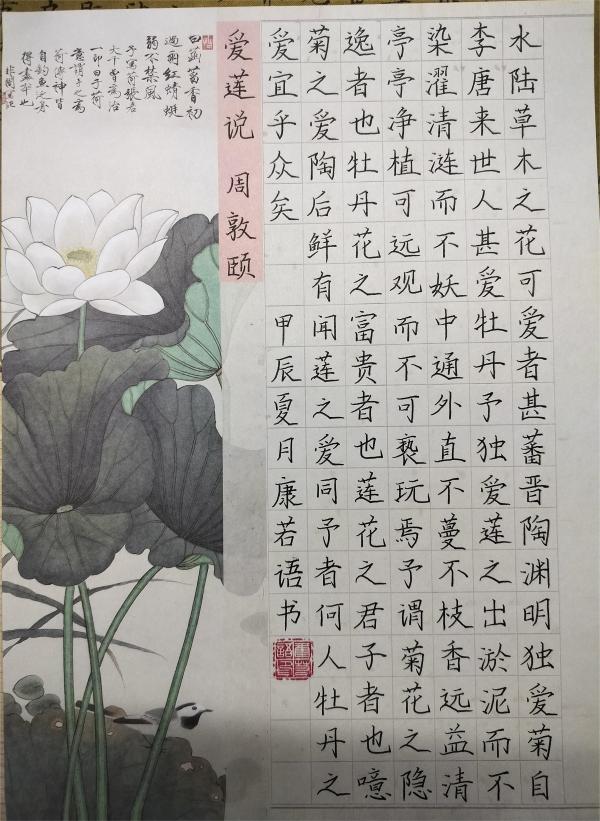 水陆草木之花可爱者甚蕃晋陶渊明独爱菊自
李唐来世人甚爱牡丹予独爱莲之出淤泥而不
染濯清涟而不妖中通外直不蔓不枝香远益清
亭亭净植可远观而不可亵玩焉予谓菊花之隐
逸者也牡丹花之富贵者也莲花之君子者也噫
菊之爱陶后鲜有闻莲之爱同予者何人牡丹之
爱宜乎众矣 甲辰夏月康若语书
爱莲说 周敦颐
白菡萏香初
过雨红蜻蜓
弱不禁风